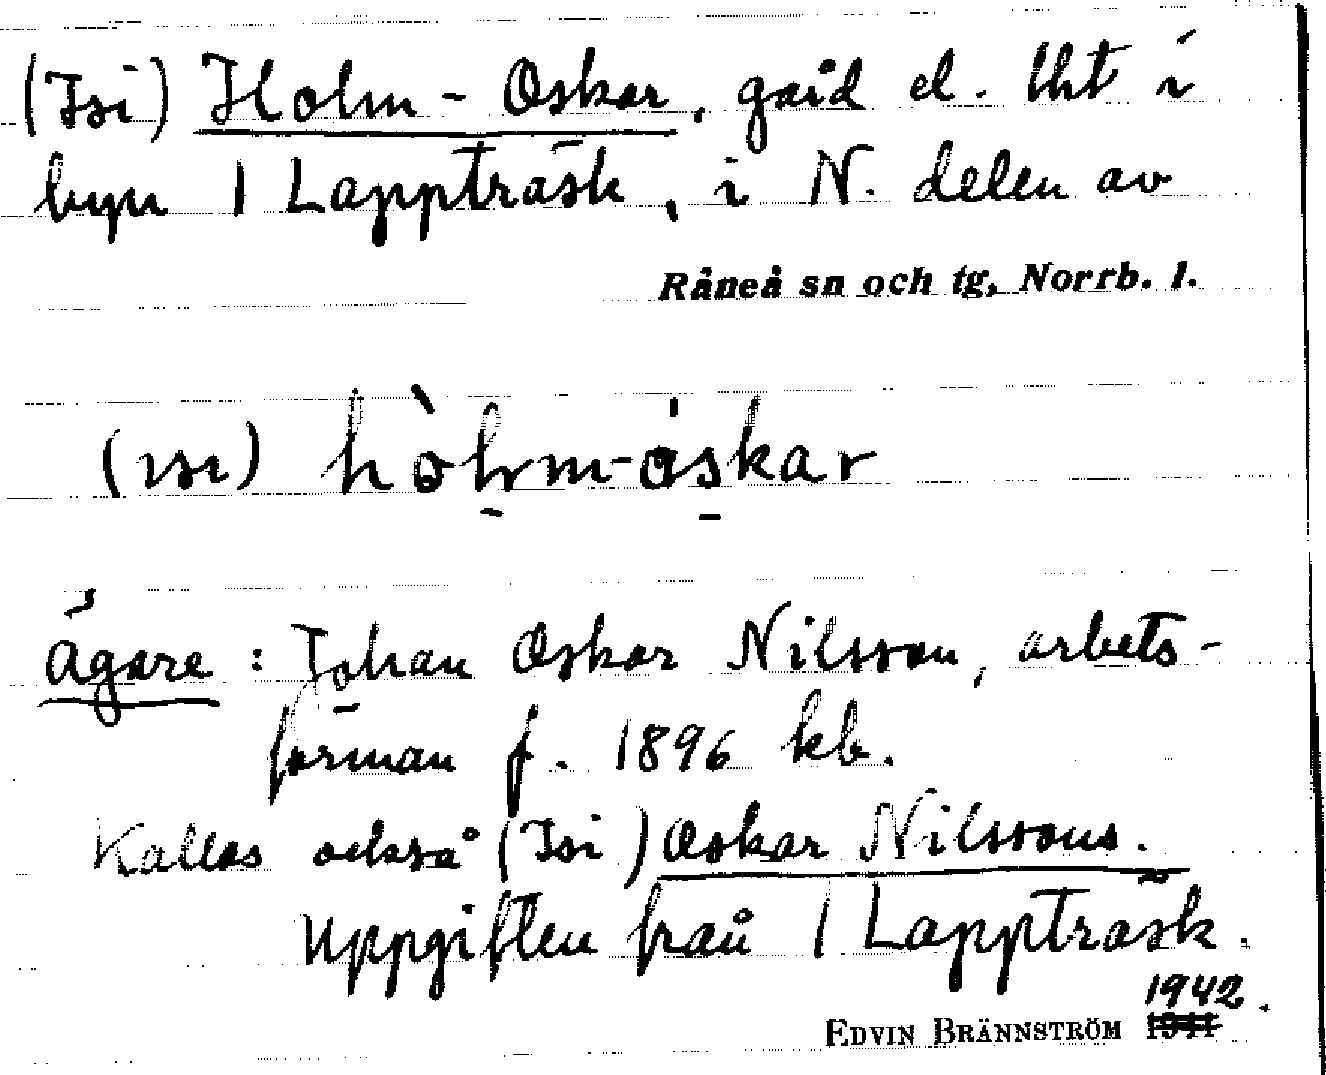 (Isi) Holm-Oskar, gård el. lht i
byn 1 Lappträsk, i N. delen av
Råneå sn och tg, Norrb. l.
(ısı) hòlm-óskar
Ägare: Johan Oskar Nilsson, arbets-
förman f. 1896 kb.
Kallas också (Isi) Oskar Nilssons.
Uppgiften från 1 Lappträsk.
1942.
EDVIN BRÄNNSTRÖM 1941